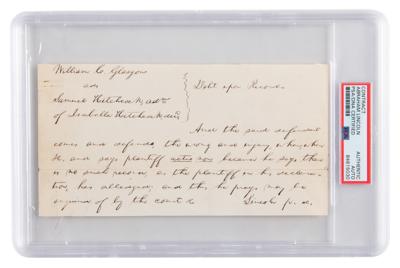 William C. Glasgow
vs
Samuel Hitchcock Adtr
of Isabella Hitchcock decd
Debt upon Record
And the said defendant
comes and defends the wrong and injury when &c
&c. and says plaintiff actio non because he says there
is no such record, as the plaintiff in his declara-
tion, has alledged; and this he prays may be
enquired of by the court &c
Lincoln p. d.
CONTRACT
ABRAHAM LINCOLN
PSA/DNA CERTIFIED
AUTHENTIC
AUTO